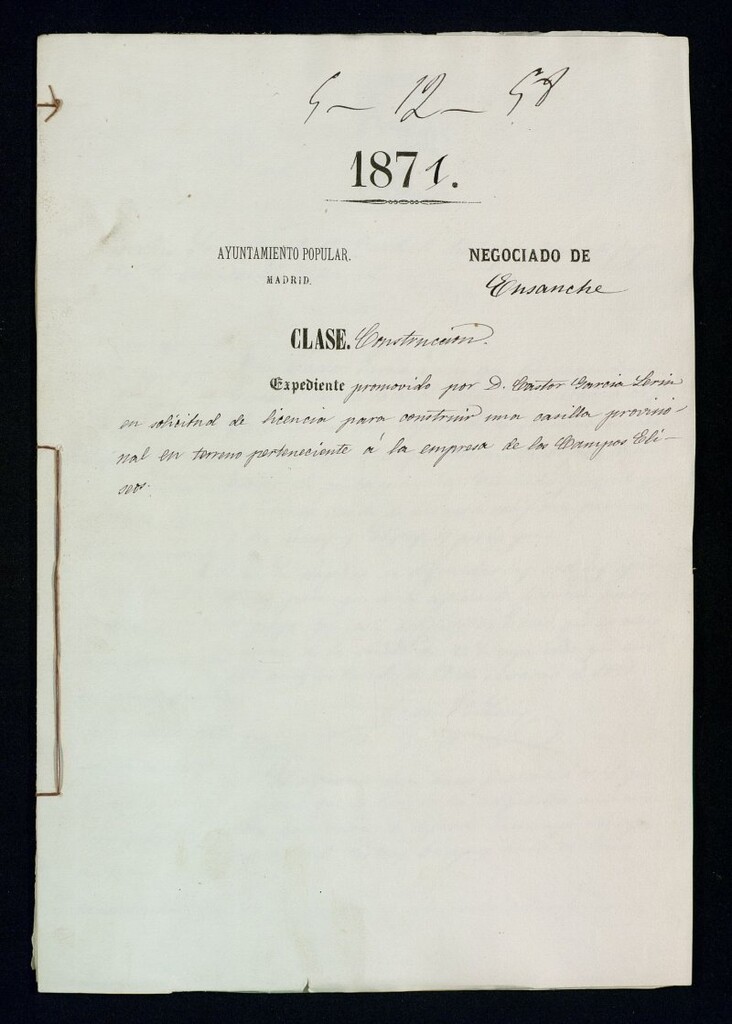 5 - 12 - 58
1871.
AYUNTAMIENTO POPULAR.
MADRID.
NEGOCIADO DE
Ensanche
CLASE. Construccion.
Expediente promovido por D. Castor Garcia
en solicitud de licencia para construir una casilla provisio-
nal en terreno perteneciente á la empresa de los Campos Elí-
seos.